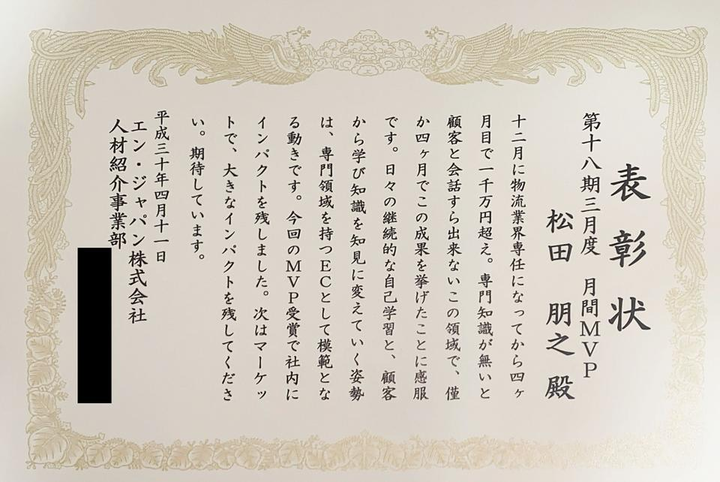 表彰状
第十八期三月度 月間MVP
松田 朋之 殿
十二月に物流業界専任になってから四ヶ
月目で一千万円超え。専門知識が無いと
顧客と会話すら出来ないこの領域で、僅
か四ヶ月でこの成果を挙げたことに感服
です。日々の継続的な自己学習と、顧客
から学び知識を知見に変えていく姿勢
は、専門領域を持つECとして模範とな
る動きです。今回のMVP受賞で社内に
インパクトを残しました。次はマーケッ
トで、大きなインパクトを残してくださ
い。期待しています。
平成三十年四月十一日
エン・ジャパン株式会社
人材紹介事業部